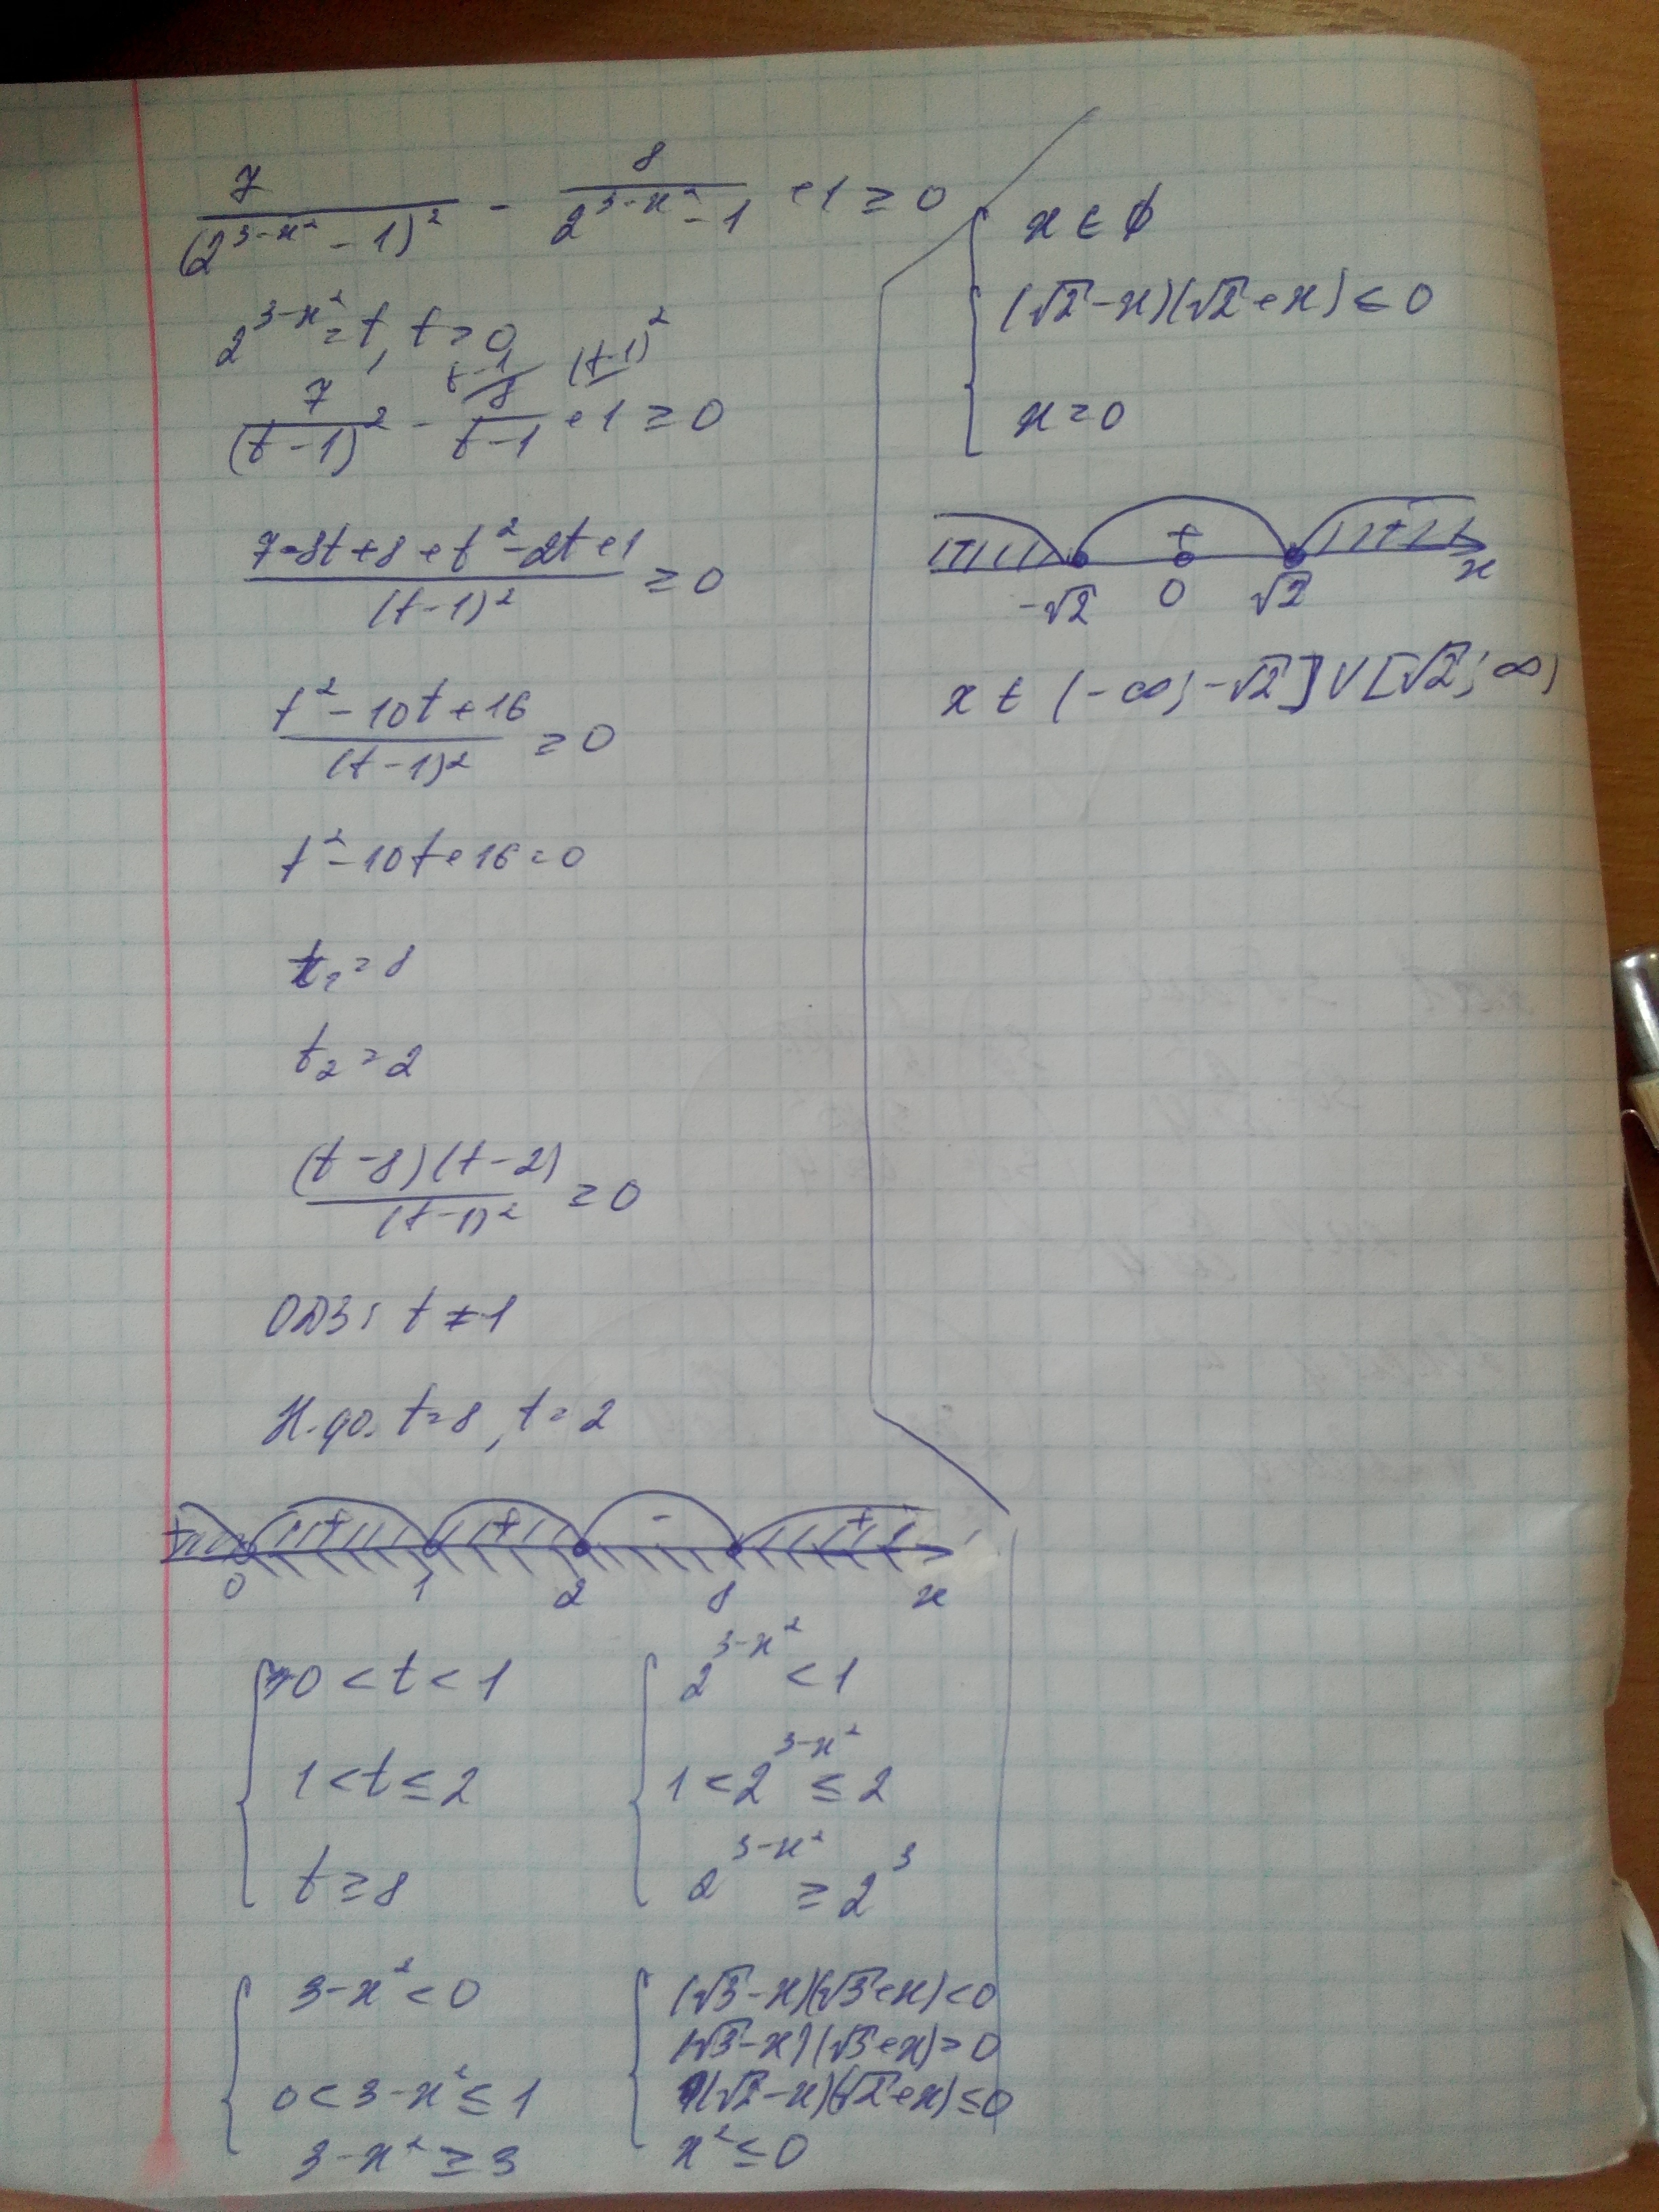 7/(2^(3-x²) - 1)² - 8/(2^(3-x²) - 1) + 1 ≥ 0
2^(3-x²) = t, t > 0
7/(t-1)² - 8/(t-1) + 1 ≥ 0
t-1 (t-1)²
(7-8t+8+t²-2t+1)/(t-1)² ≥ 0
(t²-10t+16)/(t-1)² ≥ 0
t²-10t+16=0
t₁=8
t₂=2
(t-8)(t-2)/(t-1)² ≥ 0
ОДЗ: t≠1
Н.ф. t=8, t=2
+ + + - +
0 1 2 8 x
0<t<1
1<t≤2
t≥8
2^(3-x²) < 1
1 < 2^(3-x²) ≤ 2
2^(3-x²) ≥ 2³
3-x²<0
0<3-x²≤1
3-x²≥3
(√3-x)(√3+x)<0
(√3-x)(√3+x)>0
(√2-x)(√2+x)≤0
x²≤0
x ∈ ∅
(√2-x)(√2+x)≤0
x=0
- + +
-√2 0 √2 x
x ∈ (-∞; -√2] ∪ [√2; ∞)